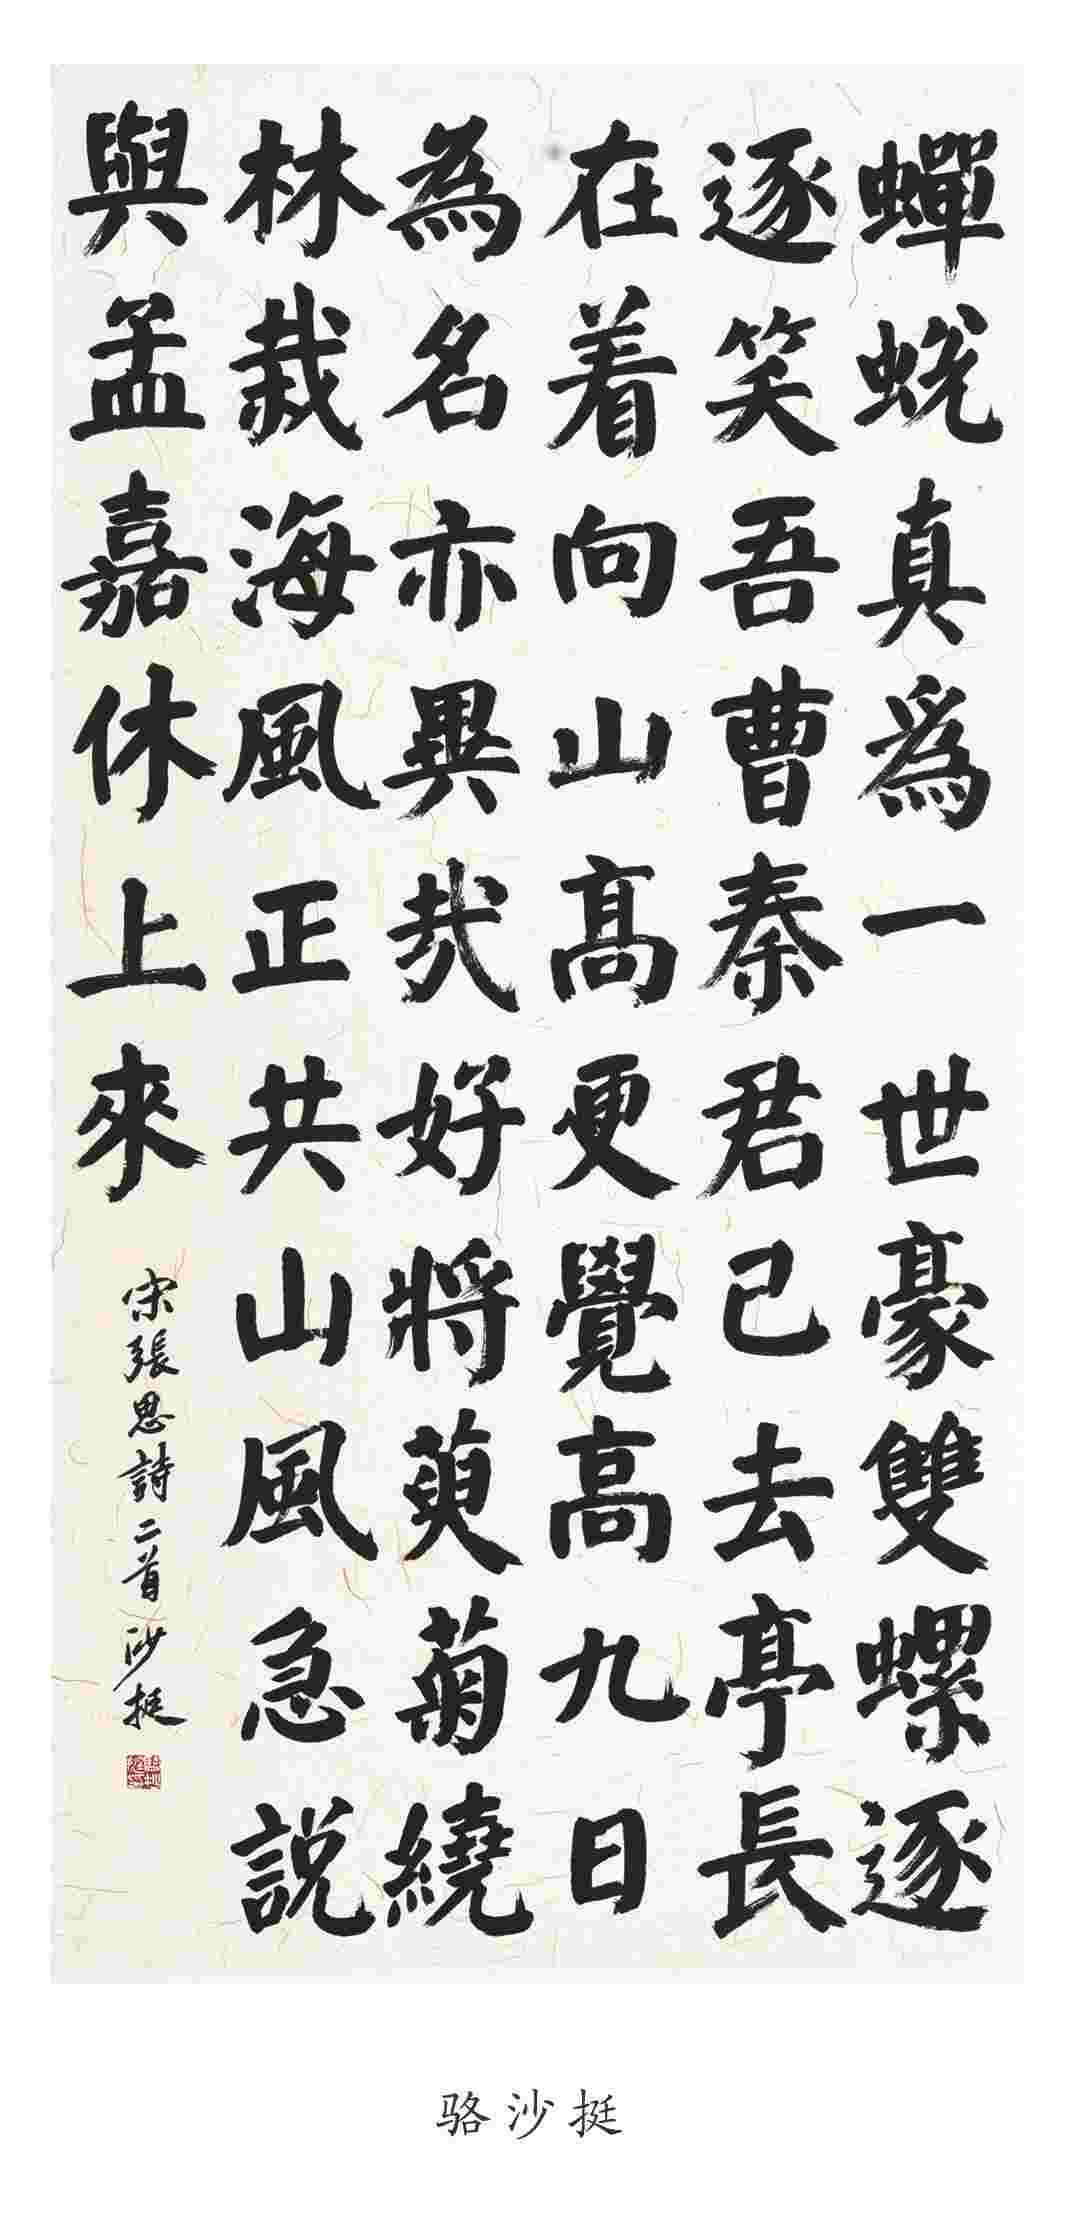 蟬蛻真爲一世豪雙螺逐
逐笑吾曹秦君已去亭長
在着向山高更覺高九日
為名亦異哉好將萸菊繞
林栽海風正共山風急說
與孟嘉休上來
宋張思詩二首沙挺
骆沙挺